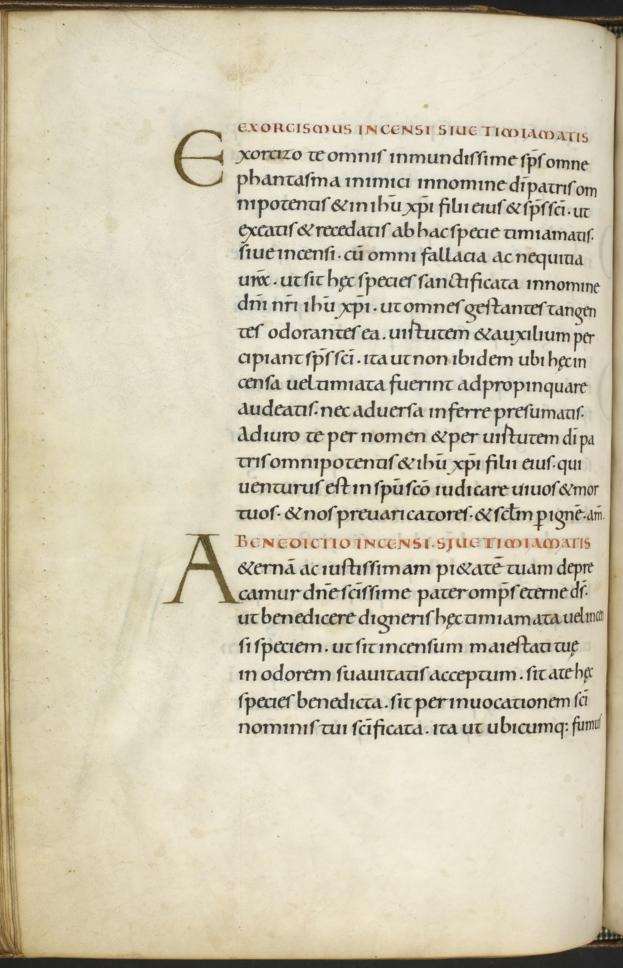 EXORCISMUS INCENSI SIUE TIMIAMATIS
Exorcizo te omnis inmundissime sp̄s omne
phantasma inimici innomine dī patris om
nipotentis & in ihū xp̄i filii eius & sp̄s sc̄i · ut
exeatis & recedatis ab hac specie timiamatis.
siue incensi · cū omni fallacia ac nequitia
ur̄æ · ut sit hęc species sanctificata innomine
dn̄i nr̄i ihū xp̄i · ut omnes gestantes tangen
tes odorantes ea . uirtutem & auxilium per
cipiant sp̄s sc̄i . ita ut non ibidem ubi hęc in
censa uel timiata fuerint adpropinquare
audeatis · nec aduersa inferre presumatis ·
Adiuro te per nomen & per uirtutem dī pa
tris omnipotentis & ihū xp̄i filii eius · qui
uenturus est in sp̄u sc̄o iudicare uiuos & mor
tuos · & nos preuaricatores · & sclm̄ p ignē · am̄.
BENEDICTIO INCENSI · SIUE TIMIAMATIS
A&ernā ac iustissimam pi&atē tuam depre
camur dn̄e sc̄issime pater omp̄s eterne ds̄ ·
ut benedicere digneris hęc timiamata uel incen
si speciem . ut sit incensum maiestati tuę
in odorem suauitatis acceptum . sit a te hęc
species benedicta . sit per inuocationem sc̄i
nominis tui sc̄ificata . ita ut ubicumq: fumus